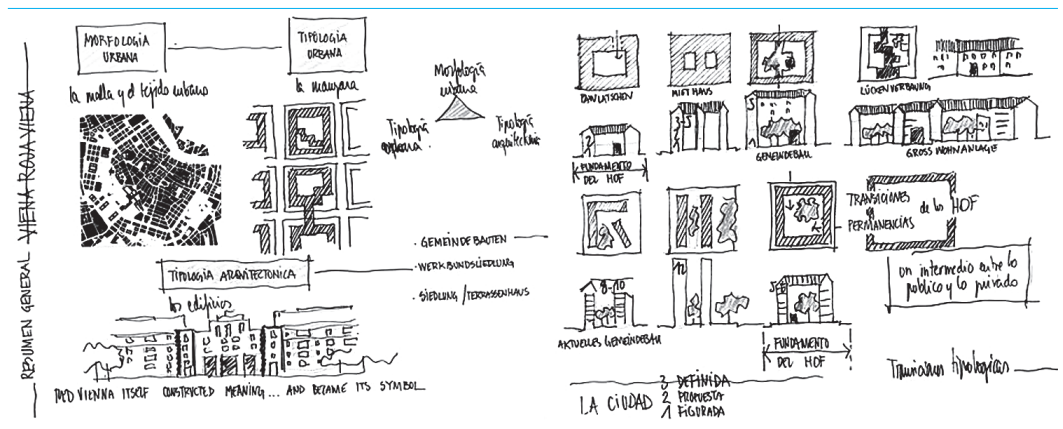 RESUMEN GENERAL VIENA ROJA VIENA
MORFOLOGIA
URBANA
TIPOLOGIA
URBANA
la malla y el tejido urbano
la manzana
Morfología
urbana
Tipología
urbana
Tipología
arquitectónica
TIPOLOGIA ARQUITECTONICA
los edificios
· GEMEINDEBAUTEN
· WERKBUNDSIEDLUNG
· SIEDLUNG / TERRASSENHAUS
RED VIENNA ITSELF CONSTRUCTED MEANING... AND BECAME ITS SYMBOL
MIETHAUS
LÜCKENVERBAUNG
GEMEINDEBAU
GROSS WOHNANLAGE
FUNDAMENTO
DEL HOF
TRANSICIONES
PERMANENCIAS
de los HOF
un intermedio entre lo
público y lo privado
12
8-10
AKTUELLES GEMEINDEBAU
FUNDAMENTO
DEL HOF
LA CIUDAD
3 DEFINIDA
2 PROPUESTA
1 FIGURADA
tipológicas